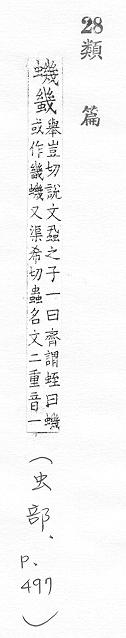 28
類篇
蟣
舉豈切說文蝨之子一曰齊謂蛭曰蟣
或作 蟣又渠希切蟲名文二重音一
(虫部、p.497)